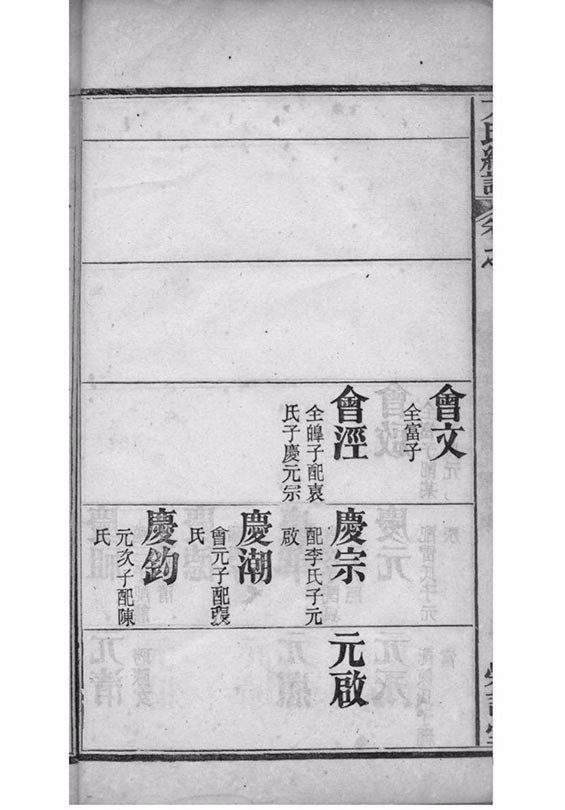 會文
全富子
會涇
全皥子配袁
氏子慶元宗
慶宗
配李氏子元
啟
慶潮
會元子配張
氏
慶鈞
元次子配陳
氏
元啟